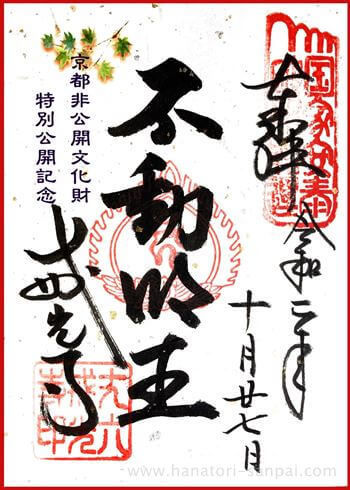 奉拝
令和二年
十月廿七日
不動明王
京都非公開文化財
特別公開記念
戒光寺
www.hanatori-sanpai.com